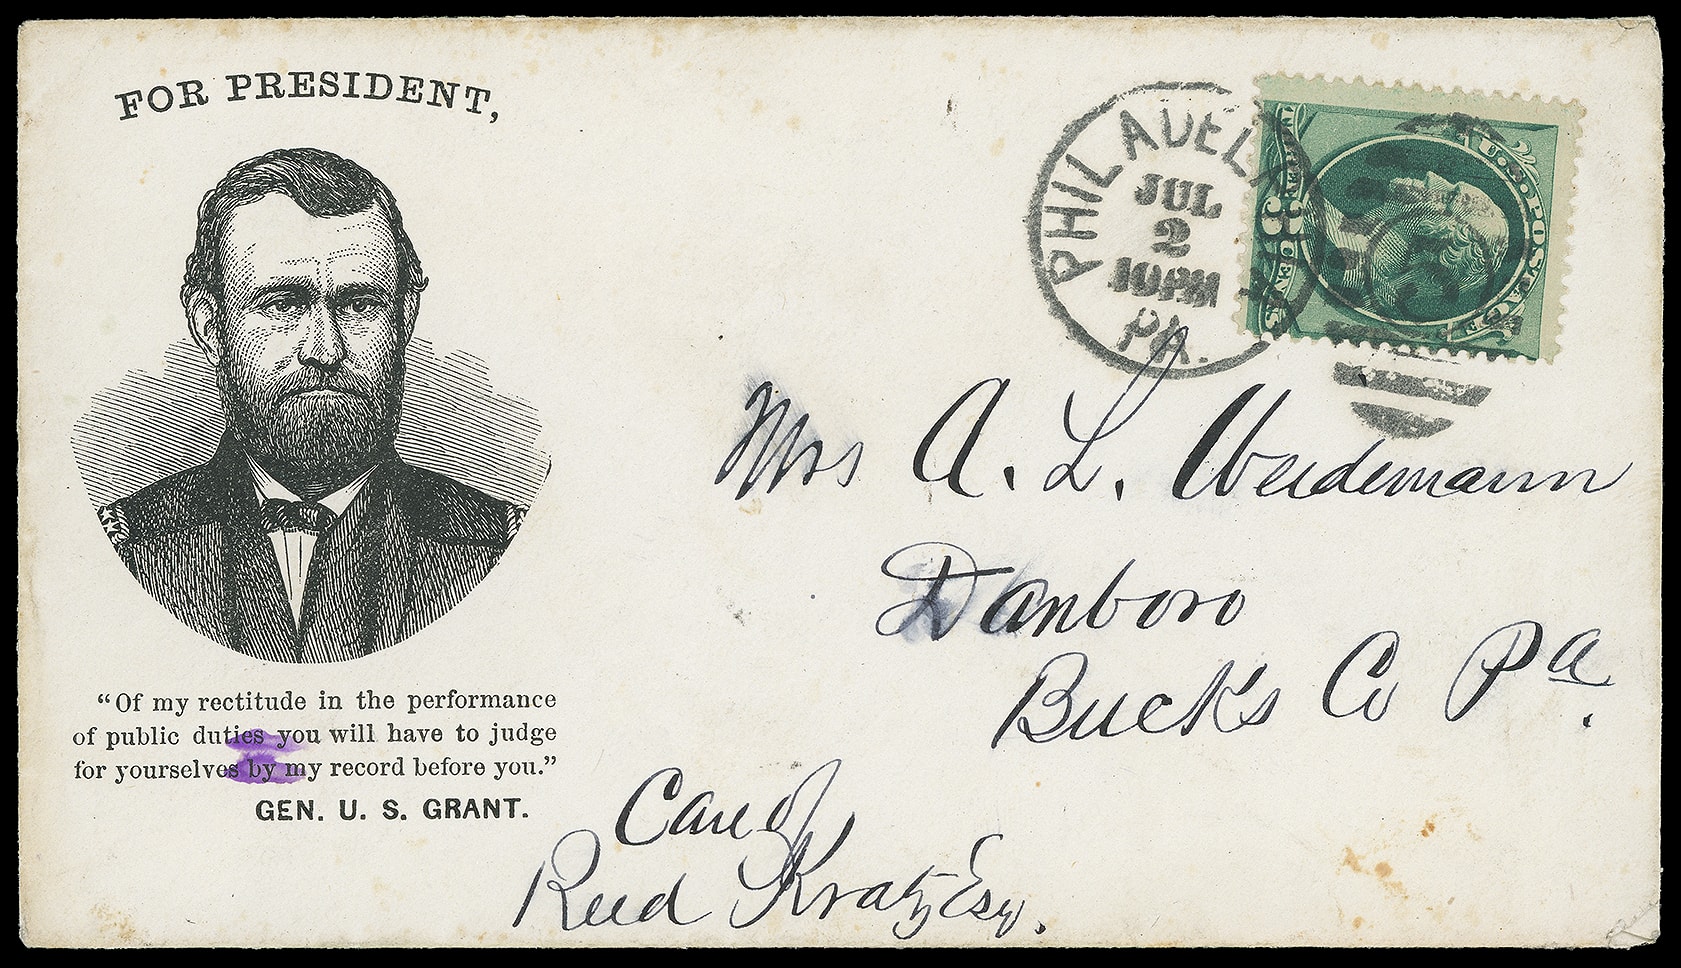 FOR PRESIDENT,
"Of my rectitude in the performance
of public duties you will have to judge
for yourselves by my record before you."
GEN. U. S. GRANT.
PHILADELPHIA
JUL
2
10PM
PA.
U.S. POSTAGE
THREE 3 CENTS
Mrs A. L. Weidemann
Danboro
Buck's Co Pa.
Care of
Reed Kratz Esq.